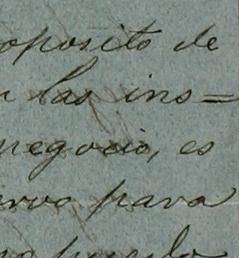 oposito de
las ins=
negocio, es
ervo para
puedo